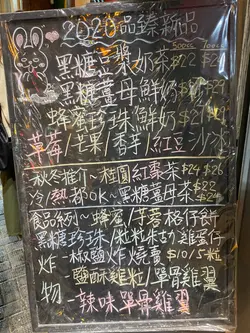 2020品臻新品
500cc 700cc
黑糖豆漿奶茶 $22
黑糖薑母鮮奶
蜂蜜珍珠鮮奶
草莓/芒果/香芋/紅豆沙冰
秋冬推介~桂圓紅棗茶 $24 $26
冷/熱都OK~黑糖薑母茶 $22 $24
食品系列~蜂蜜/芋蓉格仔餅
黑糖珍珠/粒粒朱古力雞蛋仔
炸物 ~椒鹽炸燒賣 $10/5粒
~鹽酥雞粒/單骨雞翼
~辣味單骨雞翼